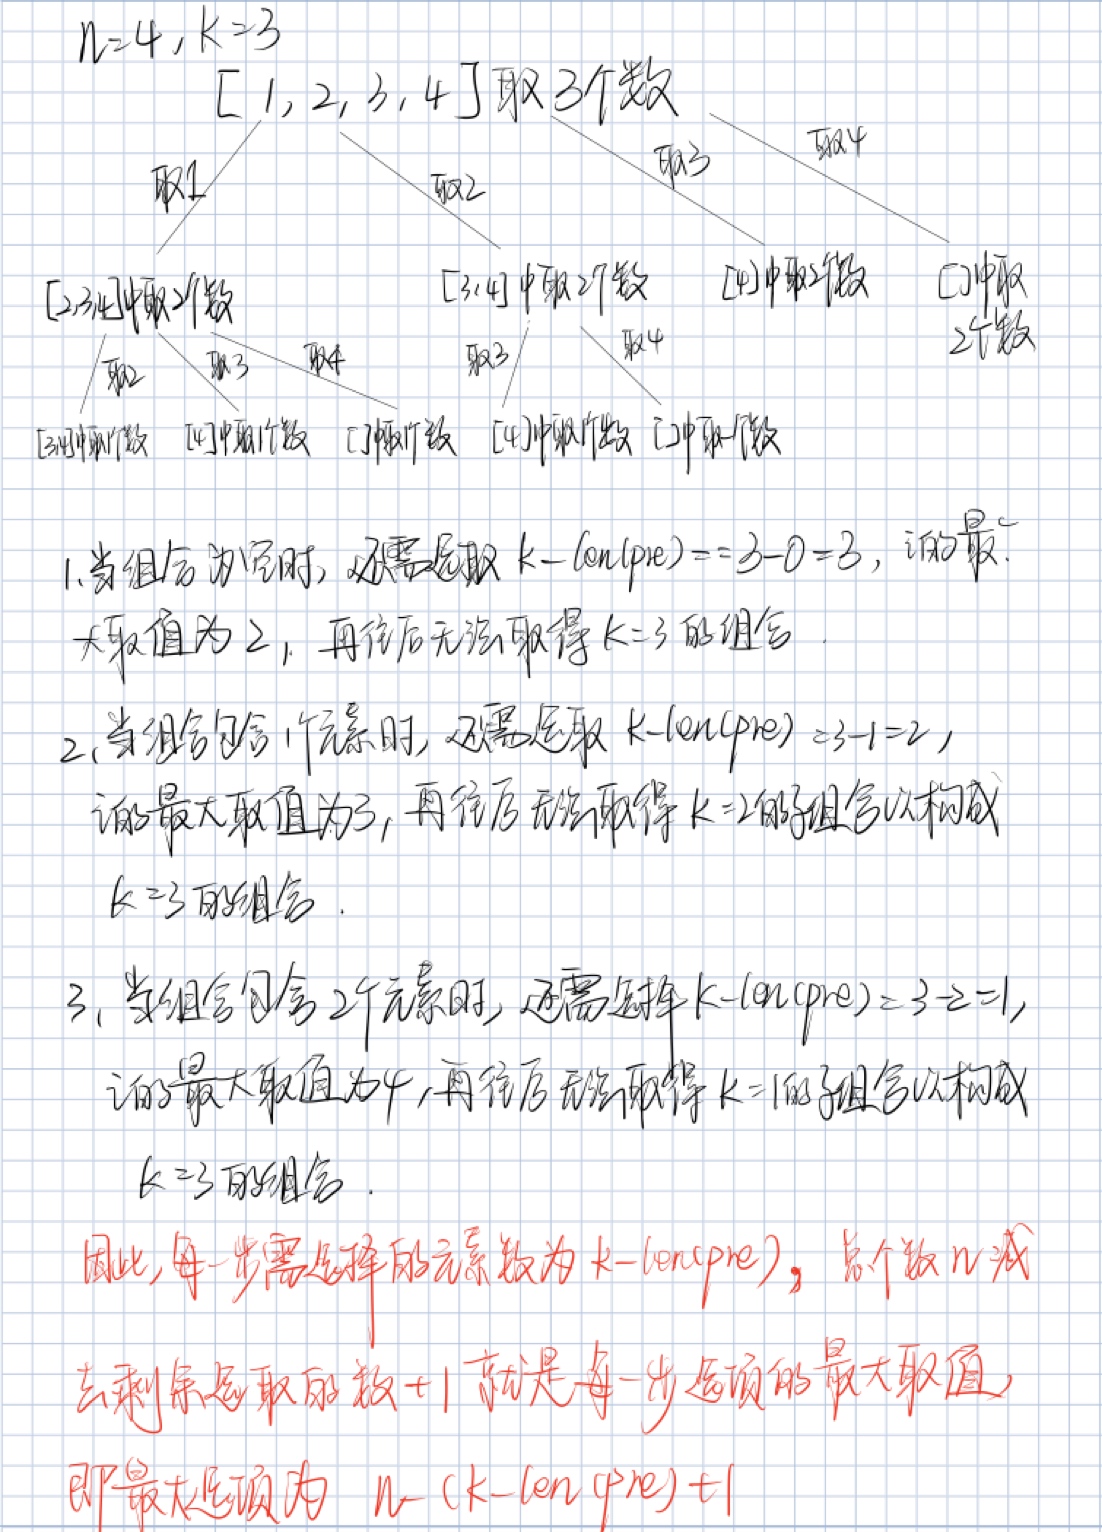 n=4,k=3
[1,2,3,4]取3个数
取1 取2 取3 取4
[2,3,4]中取2个数 [3,4]中取2个数 [4]中取2个数 []中取
2个数
取2 取3 取4 取3 取4
[3,4]中取1个数 [4]中取1个数 []中取1个数 [4]中取1个数 []中取1个数
1、当组合为空时,还需选取 k-len(pre)==3-0=3,i的最
大取值为2,再往后无法取得k=3的组合
2、当组合包含1个元素时,还需选取 k-len(pre)=3-1=2,
i的最大取值为3,再往后无法取得k=2的子组合以构成
k=3的组合.
3、当组合包含2个元素时,还需选择k-len(pre)=3-2=1,
i的最大取值为4,再往后无法取得k=1的子组合以构成
k=3的组合.
因此,每一步需选择的元素数为k-len(pre),总个数n减
去剩余选取的数+1就是每一步选项的最大取值,
即最大选项为 n-(k-len(pre)+1